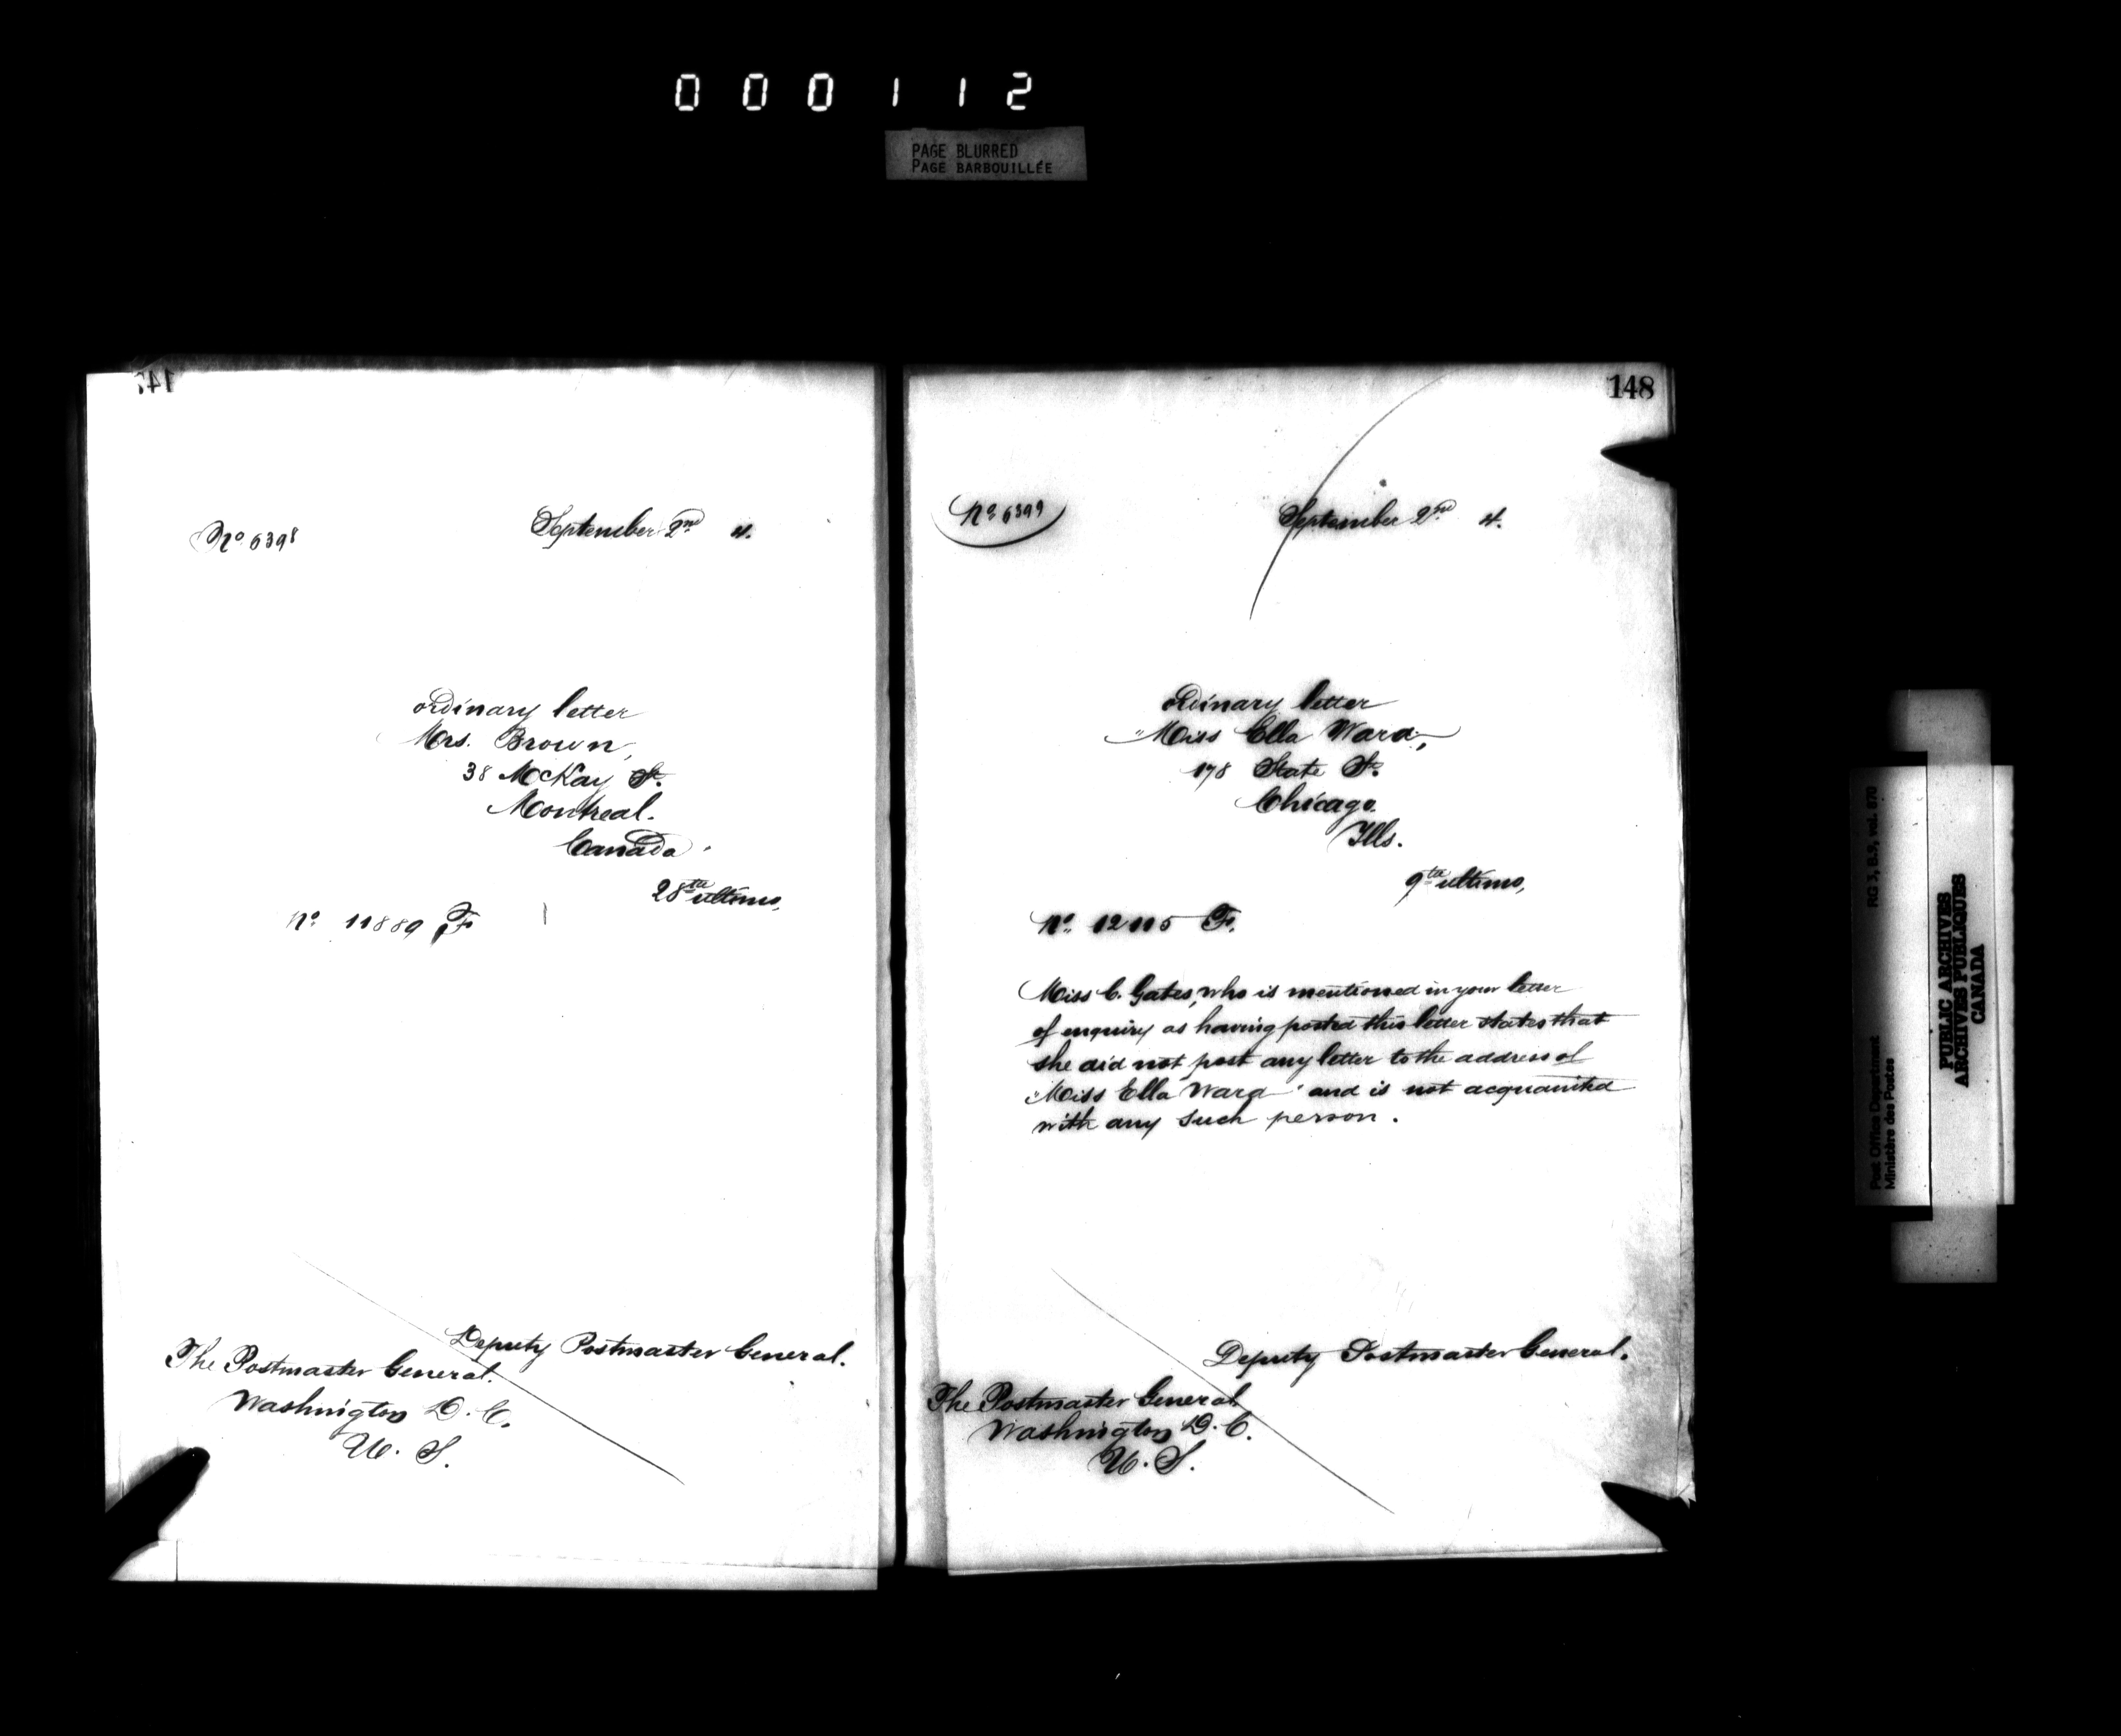 000112
PAGE BLURRED
PAGE BARBOUILLÉE
147
No 6398
September 2nd 4.
ordinary letter
Mrs. Brown,
38 McKay St.
Montreal.
Canada.
28th ultimo,
No 11889 F
Deputy Postmaster General.
The Postmaster General.
Washington D. C.
U. S.
148
No 6399
September 2nd 4.
ordinary letter
"Miss Ella Ward",
178 State St.
Chicago.
Ills.
9th ultimo,
No. 12115 F.
Miss C. Gates, who is mentioned in your letter
of enquiry as having posted this letter states that
she did not post any letter to the address of
"Miss Ella Ward" and is not acquainted
with any such person.
Deputy Postmaster General.
The Postmaster General
Washington D. C.
U. S.
Post Office Department
Ministère des Postes
RG 3, B.9, vol. 670
PUBLIC ARCHIVES
ARCHIVES PUBLIQUES
CANADA